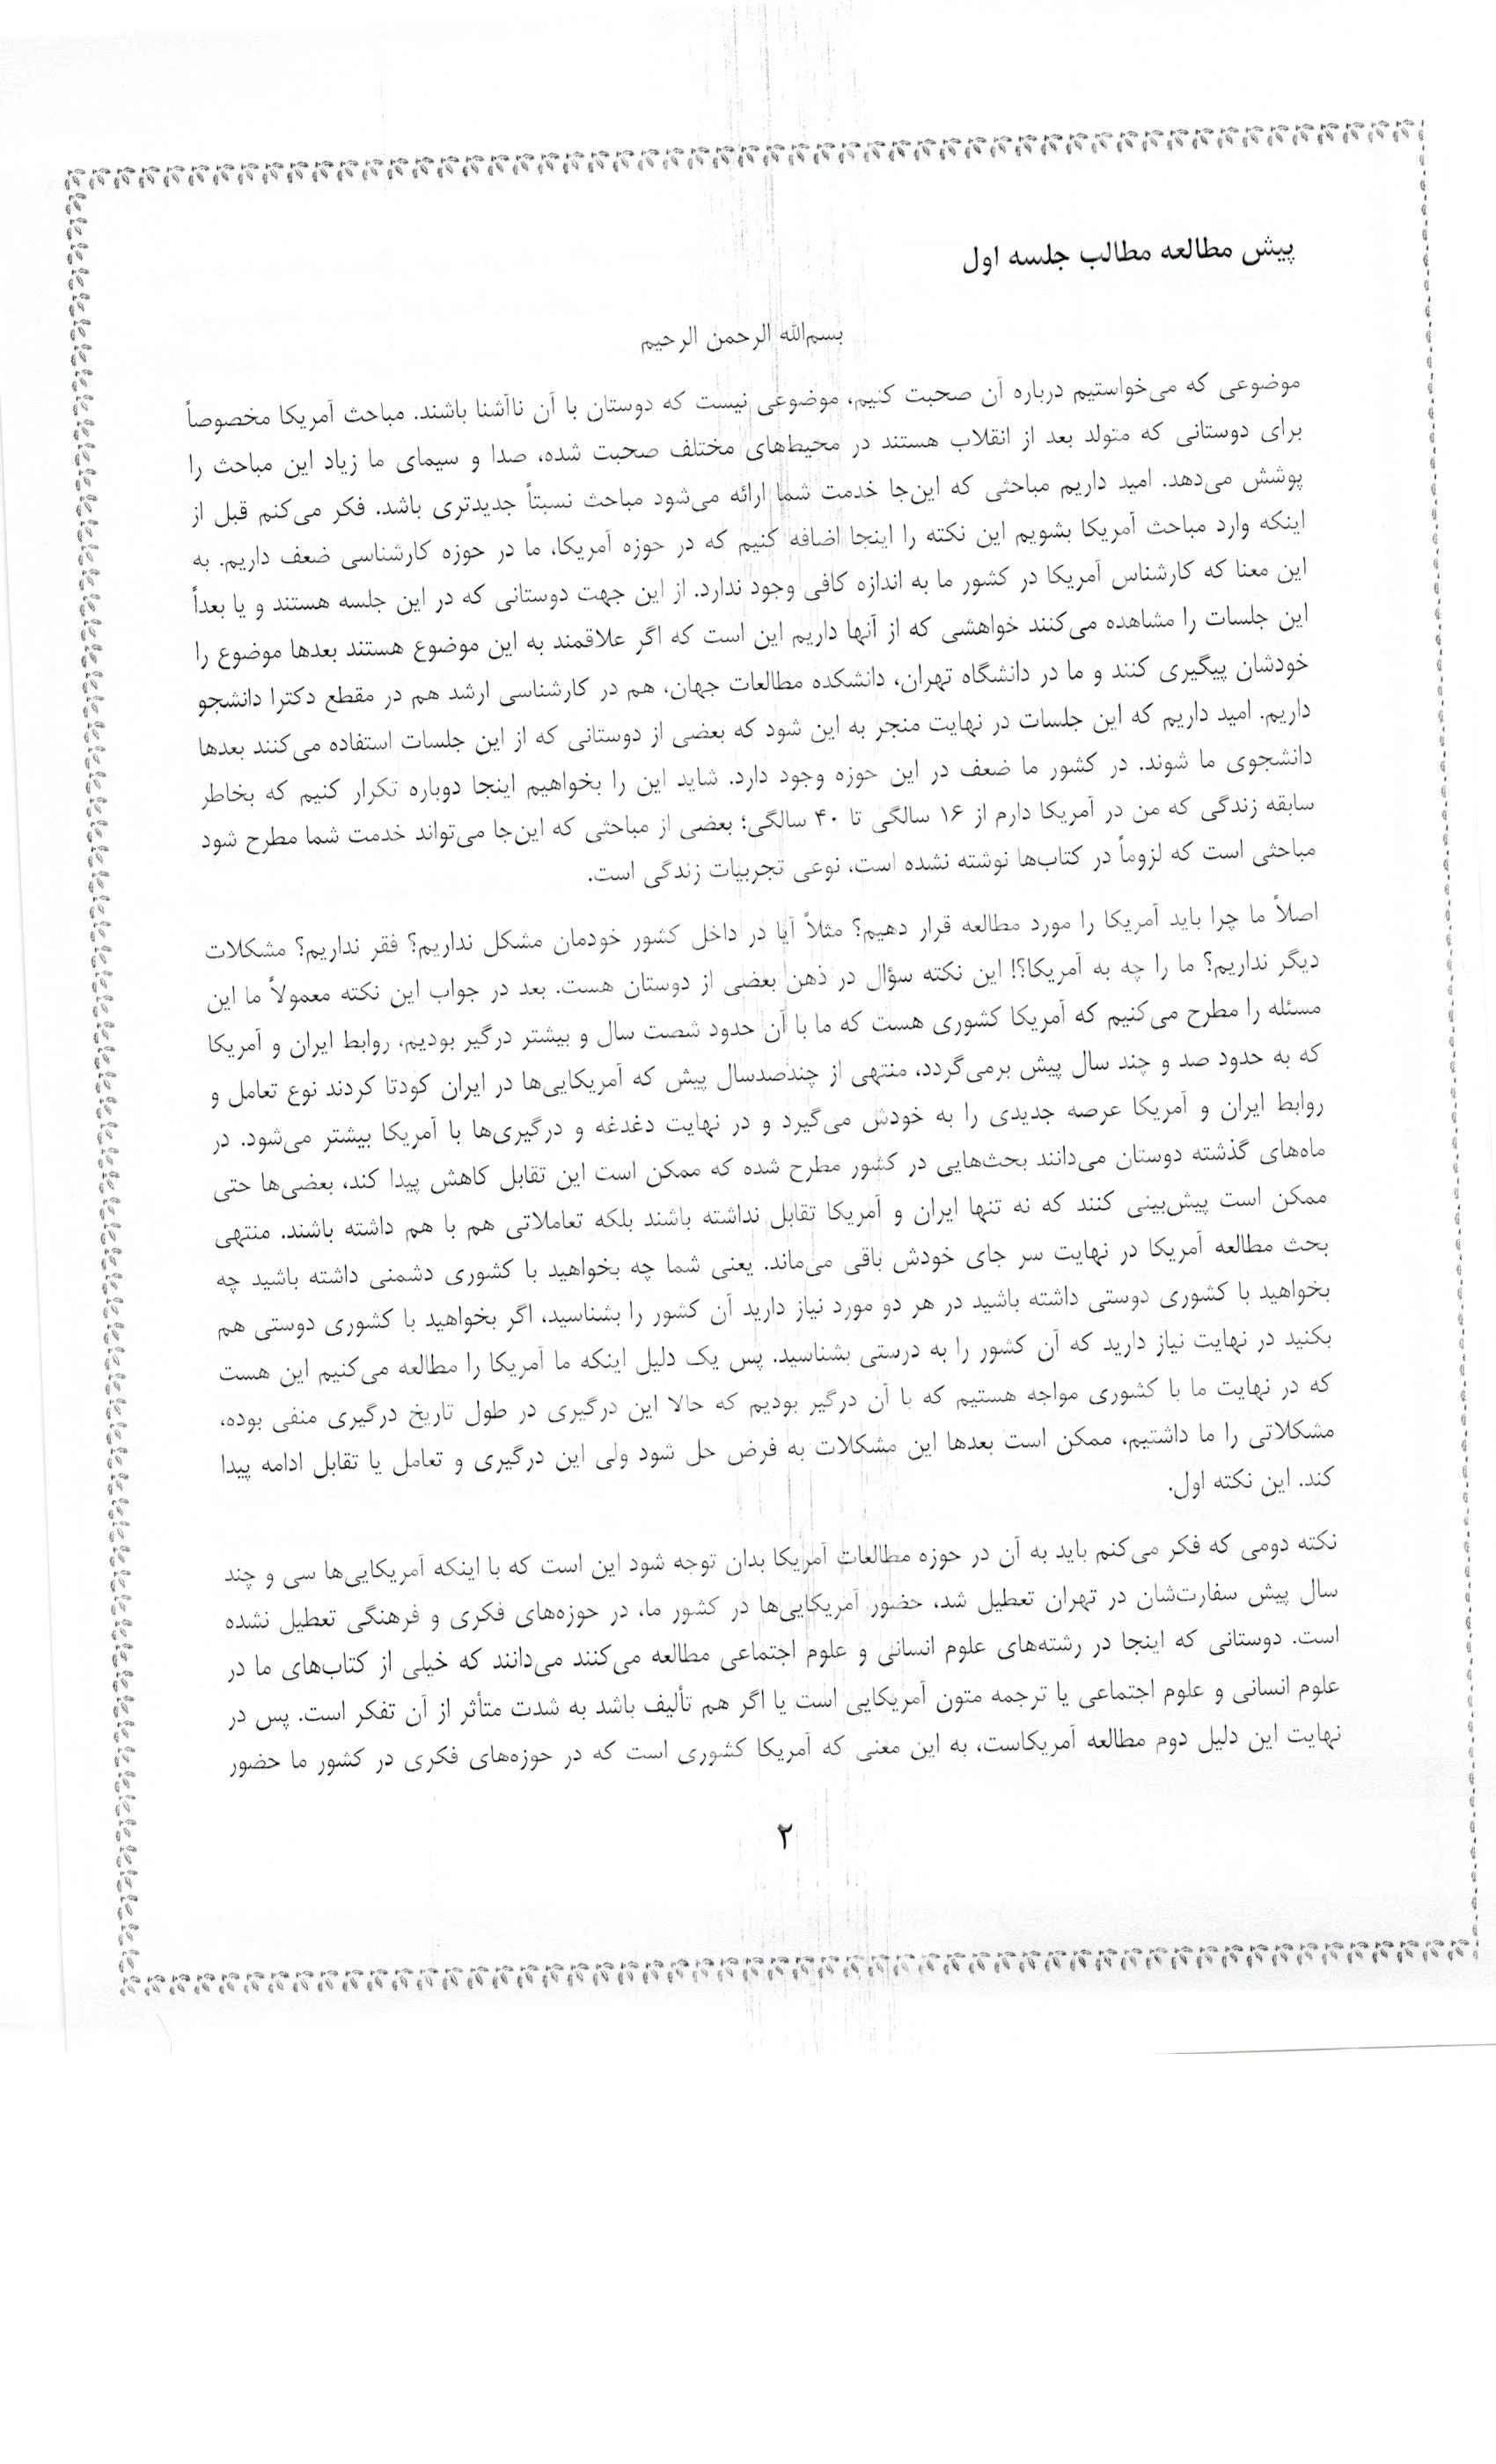 پیش مطالعه مطالب جلسه اول
بسم‌الله الرحمن الرحیم
موضوعی که می‌خواستیم درباره آن صحبت کنیم، موضوعی نیست که دوستان با آن ناآشنا باشند. مباحث آمریکا مخصوصاً
برای دوستانی که متولد بعد از انقلاب هستند در محیط‌های مختلف صحبت شده، صدا و سیمای ما زیاد این مباحث را
پوشش می‌دهد. امید داریم مباحثی که این‌جا خدمت شما ارائه می‌شود مباحث نسبتاً جدیدتری باشد. فکر می‌کنم قبل از
اینکه وارد مباحث آمریکا بشویم این نکته را اینجا اضافه کنیم که در حوزه آمریکا، ما در حوزه کارشناسی ضعف داریم. به
این معنا که کارشناس آمریکا در کشور ما به اندازه کافی وجود ندارد. از این جهت دوستانی که در این جلسه هستند و یا بعداً
این جلسات را مشاهده می‌کنند خواهشی که از آنها داریم این است که اگر علاقمند به این موضوع هستند بعدها موضوع را
خودشان پیگیری کنند و ما در دانشگاه تهران، دانشکده مطالعات جهان، هم در کارشناسی ارشد هم در مقطع دکترا دانشجو
داریم. امید داریم که این جلسات در نهایت منجر به این شود که بعضی از دوستانی که از این جلسات استفاده می‌کنند بعدها
دانشجوی ما شوند. در کشور ما ضعف در این حوزه وجود دارد. شاید این را بخواهیم اینجا دوباره تکرار کنیم که بخاطر
سابقه زندگی که من در آمریکا دارم از ۱۶ سالگی تا ۴۰ سالگی؛ بعضی از مباحثی که این‌جا می‌تواند خدمت شما مطرح شود
مباحثی است که لزوماً در کتاب‌ها نوشته نشده است، نوعی تجربیات زندگی است.
اصلاً ما چرا باید آمریکا را مورد مطالعه قرار دهیم؟ مثلاً آیا در داخل کشور خودمان مشکل نداریم؟ فقر نداریم؟ مشکلات
دیگر نداریم؟ ما را چه به آمریکا؟! این نکته سؤال در ذهن بعضی از دوستان هست. بعد در جواب این نکته معمولاً ما این
مسئله را مطرح می‌کنیم که آمریکا کشوری هست که ما با آن حدود شصت سال و بیشتر درگیر بودیم، روابط ایران و آمریکا
که به حدود صد و چند سال پیش برمی‌گردد، منتهی از چندصدسال پیش که آمریکایی‌ها در ایران کودتا کردند نوع تعامل و
روابط ایران و آمریکا عرصه جدیدی را به خودش می‌گیرد و در نهایت دغدغه و درگیری‌ها با آمریکا بیشتر می‌شود. در
ماه‌های گذشته دوستان می‌دانند بحث‌هایی در کشور مطرح شده که ممکن است این تقابل کاهش پیدا کند، بعضی‌ها حتی
ممکن است پیش‌بینی کنند که نه تنها ایران و آمریکا تقابل نداشته باشند بلکه تعاملاتی هم با هم داشته باشند. منتهی
بحث مطالعه آمریکا در نهایت سر جای خودش باقی می‌ماند. یعنی شما چه بخواهید با کشوری دشمنی داشته باشید چه
بخواهید با کشوری دوستی داشته باشید در هر دو مورد نیاز دارید آن کشور را بشناسید، اگر بخواهید با کشوری دوستی هم
بکنید در نهایت نیاز دارید که آن کشور را به درستی بشناسید. پس یک دلیل اینکه ما آمریکا را مطالعه می‌کنیم این هست
که در نهایت ما با کشوری مواجه هستیم که با آن درگیر بودیم که حالا این درگیری در طول تاریخ درگیری منفی بوده،
مشکلاتی را ما داشتیم، ممکن است بعدها این مشکلات به فرض حل شود ولی این درگیری و تعامل یا تقابل ادامه پیدا
کند. این نکته اول.
نکته دومی که فکر می‌کنم باید به آن در حوزه مطالعات آمریکا بدان توجه شود این است که با اینکه آمریکایی‌ها سی و چند
سال پیش سفارت‌شان در تهران تعطیل شد، حضور آمریکایی‌ها در کشور ما، در حوزه‌های فکری و فرهنگی تعطیل نشده
است. دوستانی که اینجا در رشته‌های علوم انسانی و علوم اجتماعی مطالعه می‌کنند می‌دانند که خیلی از کتاب‌های ما در
علوم انسانی و علوم اجتماعی یا ترجمه متون آمریکایی است یا اگر هم تألیف باشد به شدت متأثر از آن تفکر است. پس در
نهایت این دلیل دوم مطالعه آمریکاست، به این معنی که آمریکا کشوری است که در حوزه‌های فکری در کشور ما حضور
۲